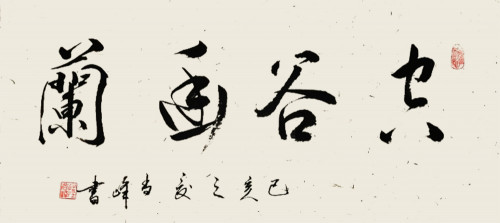 空谷幽蘭
己亥之夏峰書